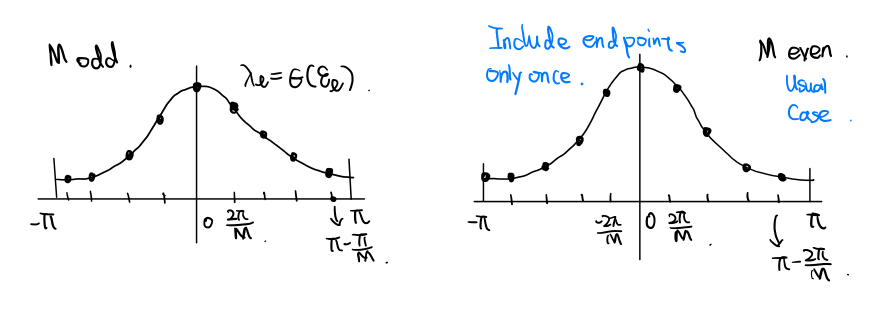 M odd.
λₑ = G(ξₑ).
-π
0
2π/M.
π
π - π/M.
Include endpoints
only once.
M even.
Usual
Case.
-π
-2π/M
0
2π/M.
π
π - 2π/M.